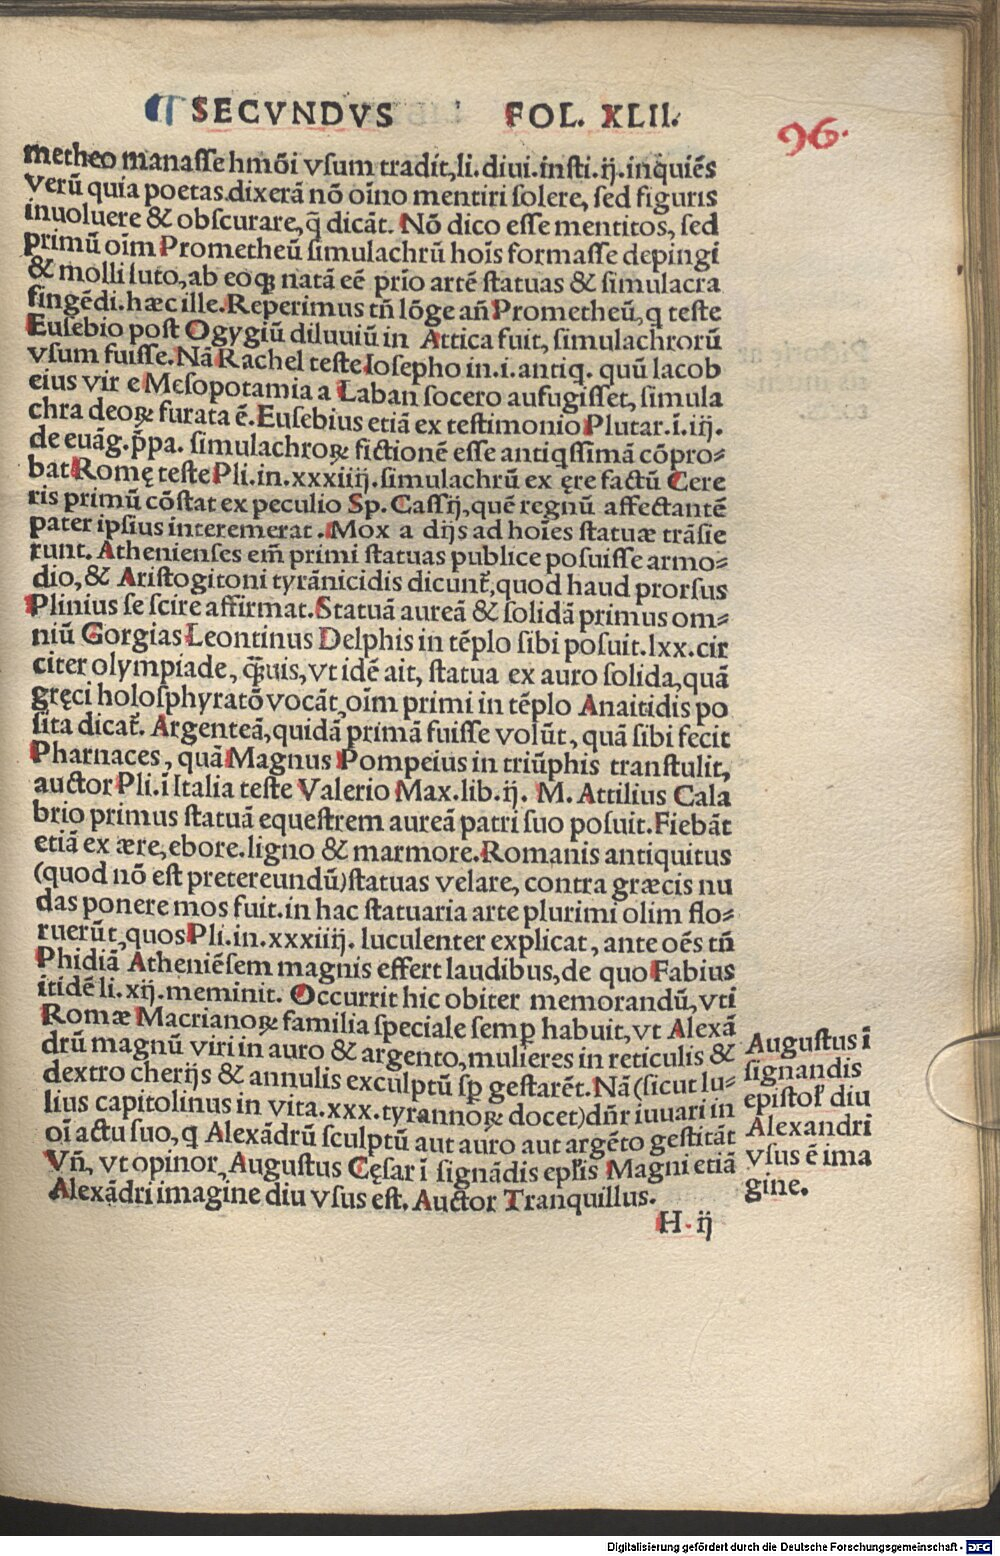 ¶ SECVNDVS FOL. XLII.
96.
metheo manasse hmōi vsum tradit, li. diui. insti. ij. inquiēs
verū quia poetas. dixerā nō oīno mentiri solere, sed figuris
inuoluere & obscurare, q̄ dicāt. Nō dico esse mentitos, sed
primū oīm Prometheū simulachrū hoīs formasse depingi
& molli luto, ab eoqꝫ natā eē prīo artē statuas & simulacra
fingēdi. hæc ille. Reperimus tñ lōge añ Prometheū, q teste
Eusebio post Ogygiū diluuiū in Attica fuit, simulachrorū
vsum fuisse. Nā Rachel teste Iosepho in. i. antiq. quū Iacob
eius vir e Mesopotamia a Laban socero aufugisset, simula
chra deoꝝ furata ē. Eusebius etiā ex testimonio Plutar. ī. iij.
de euāg. p̄pa. simulachroꝝ fictionē esse antiqssimā cōpro⸗
bat Romę teste Pli. in. xxxiiij. simulachrū ex ęre factū Cere
ris primū cōstat ex peculio Sp. Cassij, quē regnū affectantē
pater ipsius interemerat. Mox a dijs ad hoīes statuæ trāsie
runt. Athenienses em̄ primi statuas publice posuisse armo⸗
dio, & Aristogitoni tyrānicidis dicunt᷑, quod haud prorsus
Plinius se scire affirmat. Statuā aureā & solidā primus om⸗
niū Gorgias Leontinus Delphis in tēplo sibi posuit. lxx. cir
citer olympiade, q̄uis, vt idē ait, statua ex auro solida, quā
gręci holosphyratō vocāt, oīm primi in tēplo Anaitidis po
sita dicat᷑. Argenteā, quidā primā fuisse volūt, quā sibi fecit
Pharnaces, quā Magnus Pompeius in triūphis transtulit,
auctor Pli. ī Italia teste Valerio Max. lib. ij. M. Attilius Cala
brio primus statuā equestrem aureā patri suo posuit. Fiebāt
etiā ex ære, ebore. ligno & marmore. Romanis antiquitus
(quod nō est pretereundū) statuas velare, contra græcis nu
das ponere mos fuit. in hac statuaria arte plurimi olim flo⸗
ruerūt, quos Pli. in. xxxiiij. luculenter explicat, ante oēs tñ
Phidiā Atheniēsem magnis effert laudibus, de quo Fabius
itidē li. xij. meminit. Occurrit hic obiter memorandū, vti
Romæ Macrianoꝝ familia speciale semꝑ habuit, vt Alexā
drū magnū viri in auro & argento, mulieres in reticulis &
dextro cherijs & annulis exculptū sꝑ gestarēt. Nā (sicut Iu⸗
lius capitolinus in vita. xxx. tyrannoꝝ docet) dn̄r iuuari in
oī actu suo, q Alexādrū sculptū aut auro aut argēto gestitāt
Vñ, vt opinor, Augustus Cęsar ī signādis ep̄lis Magni etiā
Alexādri imagine diu vsus est. Auctor Tranquillus.
H ij
Augustus ī
signandis
epistoł diu
Alexandri
vsus ē ima
gine.
Digitalisierung gefördert durch die Deutsche Forschungsgemeinschaft - DFG